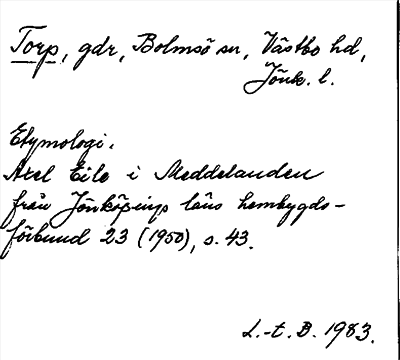 Torp, gdr, Bolmsö sn, Västbo hd,
Jönk. l.
Etymologi.
Axel Eile i Meddelanden
från Jönköpings läns hembygds-
förbund 23 (1950), s. 43.
L.-t. B. 1983.